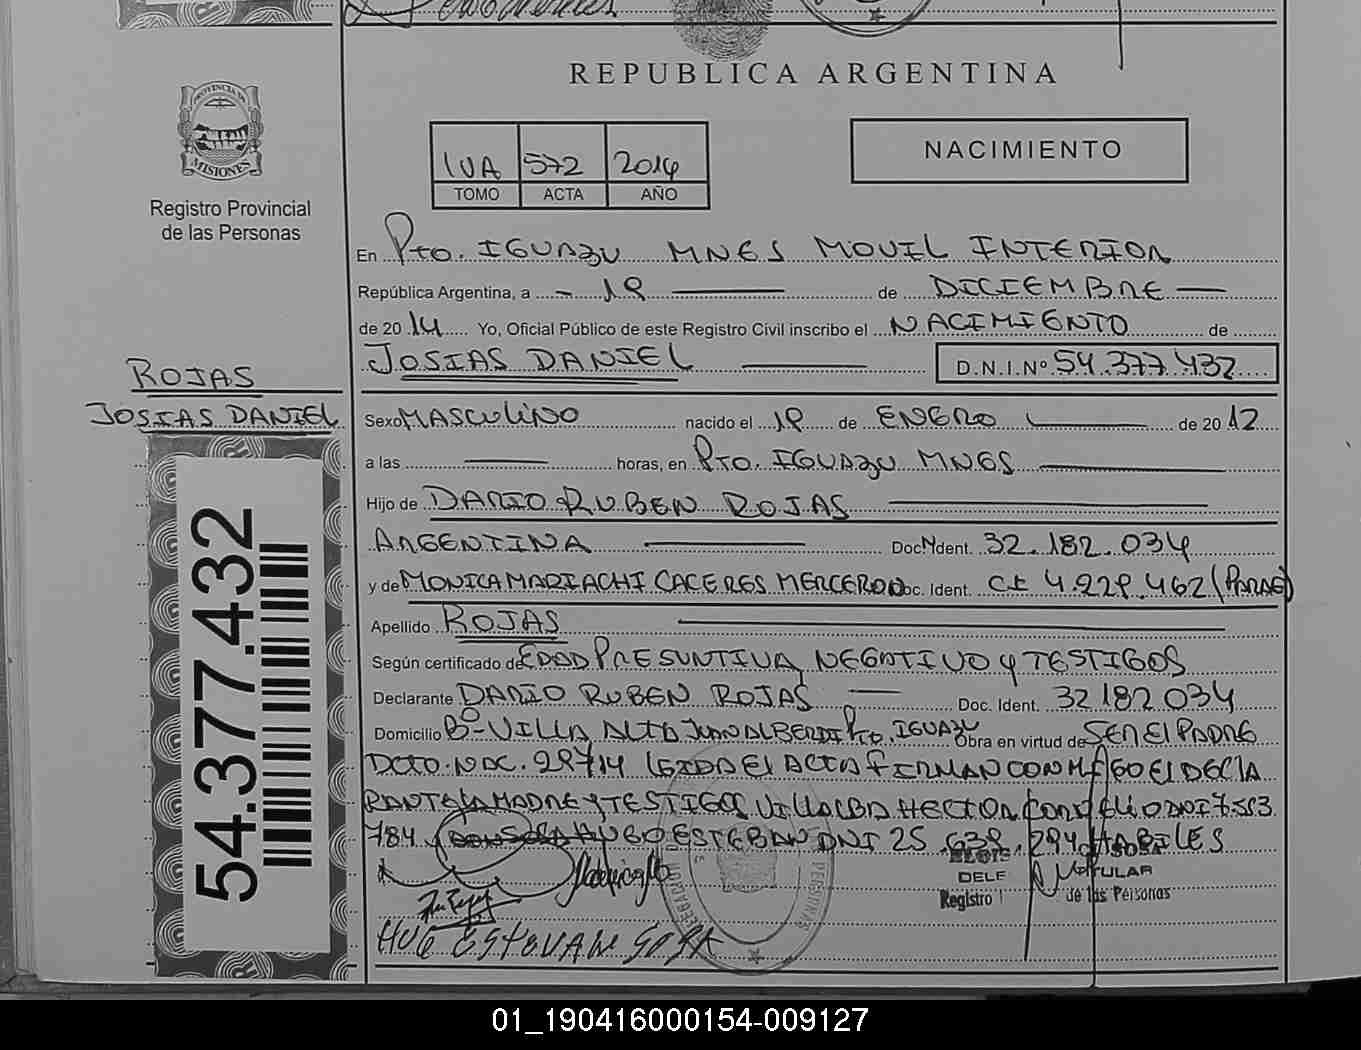 REPUBLICA ARGENTINA
PROVINCIA DE
MISIONES
Registro Provincial
de las Personas
IVA 572 2014
TOMO ACTA AÑO
NACIMIENTO
En Pto. IGUAZU MNES MOVIL INTERIOR
República Argentina, a 19 de DICIEMBRE
de 2014 Yo, Oficial Público de este Registro Civil inscribo el NACIMIENTO de
JOSIAS DANIEL D.N.I.Nº 54.377.432
ROJAS
JOSIAS DANIEL
54.377.432
Sexo MASCULINO nacido el 19 de ENERO de 2012
a las horas, en Pto. IGUAZU MNES
Hijo de DARIO RUBEN ROJAS
ARGENTINA Doc. Ident. 32.182.034
y de MONICA MARIACHI CACERES MERCEROD Doc. Ident. CI 4.229.462 (PARAG)
Apellido ROJAS
Según certificado de EDAD PRESUNTIVA, NEGATIVO y TESTIGOS
Declarante DARIO RUBEN ROJAS Doc. Ident. 32182034
Domicilio Bº VILLA ALTA JUAN ALBERDI Pto. IGUAZU Obra en virtud de SER EL PADRE
DCTO. NAC. 297/14 LEIDA EL ACTA FIRMAN CONMIGO EL DECLA
RANTE LA MADRE y TESTIGOS VILLALBA HECTOR DNI 7.563
784, HUGO ESTEBAN DNI 25.639.294 HABILES
DELE TITULAR
Registro de las Personas
HUG ESTEVAN SOSA
01_190416000154-009127